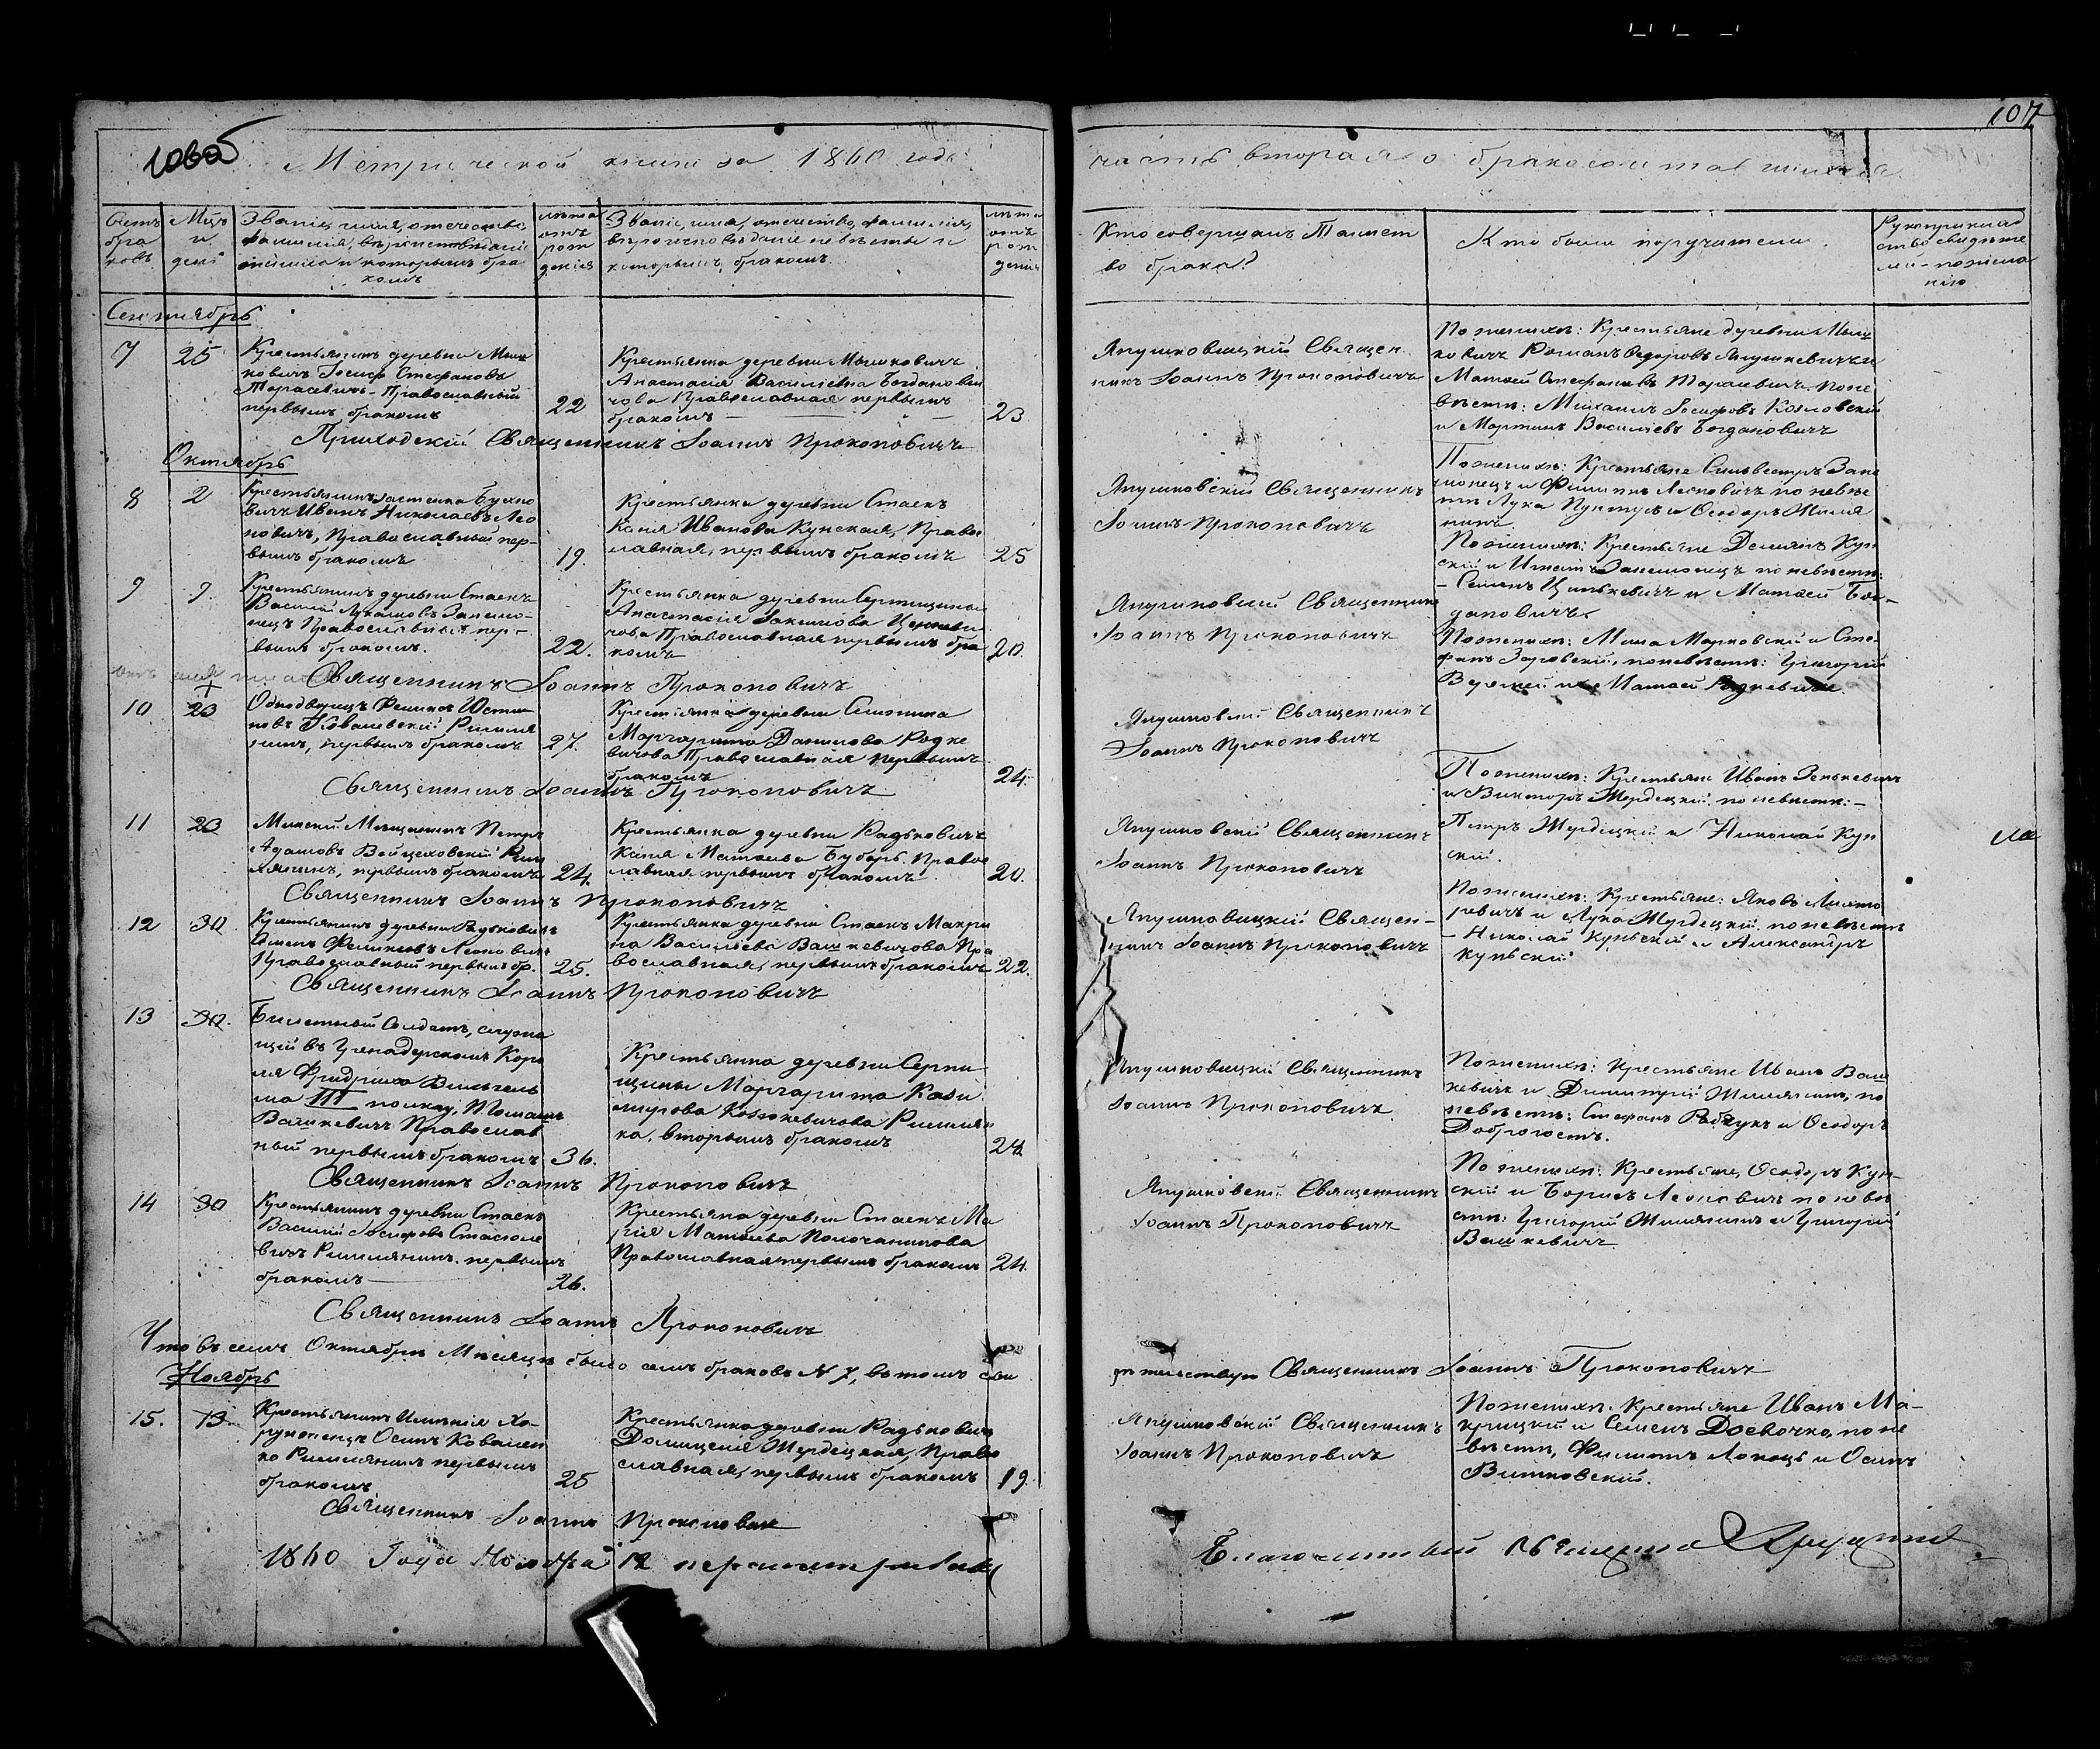 107
Метрической книги за 1860 годъ
часть вторая о бракосочетавшихся
Счетъ
бра
ковъ
Мцъ
и
день
Званіе, имя, отечество,
фамилія, вѣроисповѣданіе
жениха и которымъ бра
комъ
лѣта
отъ
рож
денія
Званіе, имя, отечество, фамилія,
вѣроисповѣданіе невѣсты и
которымъ бракомъ.
лѣта
отъ
рож
денія
Кто совершалъ Таинст
во брака?
Кто были поручители.
Рукоприклад
ство свидѣте
лей по жела
нію
Сентябрь
7
25
Крестьянинъ деревни Мыш
ковичъ Іосифъ Стефановъ
Тарасевичъ - Православный
первымъ бракомъ
22
Крестьянка деревни Мышковичъ
Анастасія Васильева Богданови
чова Православная первымъ
бракомъ
23
Священ
никъ Іоаннъ Прокоповичъ
По женихѣ: Крестьяне деревни Мыш
ковичъ Романъ Ѳедоровъ Янушкевичъ и
Матѳей Стефановъ Тарасевичъ. по не
вѣстѣ: Михаилъ Іосифовъ Козловскій
и Мартинъ Васильевъ Богдановичъ
Приходскій Священникъ Іоаннъ Прокоповичъ
Октябрь
8
2
Крестьянинъ застенка
Иванъ Николаевъ Лео
новичъ, Православный пер-
вымъ бракомъ
19.
Крестьянка деревни Стаекъ
Ксенія Иванова Кунская, Право
славная, первымъ бракомъ
25
Священникъ
Іоаннъ Прокоповичъ
По женихѣ: Крестьяне Сильвестръ Зане
монецъ и Филиппъ Леоновичъ по невѣс
тѣ Лука и Ѳеодоръ Жиля
нинъ.
9
9.
Крестьянинъ деревни Стаекъ
Василій Лукашовъ Занемо-
нецъ Православный пер-
вымъ бракомъ.
22.
Крестьянка деревни Серпищины
Анастасія
Православная первымъ бра
комъ
20.
Священникъ
Іоаннъ Прокоповичъ
По женихѣ: Крестьяне Демьянъ Кун
скій и Игнатъ Занемонецъ по невѣстѣ:
- Семенъ и Матѳей Бог-
дановичъ.
Священникъ Іоаннъ Прокоповичъ
10
23
Однодворецъ Феликсъ
Ковалевскій Римля
нинъ, первымъ бракомъ
27.
Крестьянка деревни
Маргарита Данилова Родке
вичова Православная первымъ
бракомъ
24.
Священникъ
Іоаннъ Прокоповичъ
По женихѣ: и Сте-
фанъ по невѣстѣ: Григорій
и Матѳей
Священникъ Іоаннъ Прокоповичъ
11
23
Минскій Мѣщанинъ Петръ
Адамовъ Войцеховскій Рим
лянинъ, первымъ бракомъ
24.
Крестьянка деревни Радьковичъ
Ксенія Матвѣева Право
славная первымъ бракомъ
20.
Священникъ
Іоаннъ Прокоповичъ
По женихѣ: Крестьяне Иванъ Зенькевичъ
и Викторъ Жердецкій по невѣстѣ: -
Петръ Жердецкій и Николай Кун
скій.
Священникъ Іоаннъ Прокоповичъ
12
30.
Крестьянинъ деревни Радьковичъ
Феликсовъ Леоновичъ
Православный первымъ бр.
25.
Крестьянка деревни Стаекъ Макри
на Васильева Вашкевичова Пра
вославная, первымъ бракомъ
22.
Священ-
никъ Іоаннъ Прокоповичъ
По женихѣ: Крестьяне: Яковъ
и Лука Жердецкій. по невѣстѣ
- Николай Кунскій и Александръ
Кунскій
Священникъ Іоаннъ Прокоповичъ
13
30.
Билетный Солдатъ, служа
щій въ Гренадерскомъ Коро
ля Фридриха Вильгель
ма III полку, Томашъ
Вашкевичъ Православ
ный первымъ бракомъ
36.
Крестьянка деревни Серпи
щины Маргарита Кази
мирова Римлян
ка, вторымъ бракомъ
24
Священникъ
Іоаннъ Прокоповичъ
По женихѣ: Крестьяне Иванъ Ваш
кевичъ и Димитрій Жилянинъ, по
невѣстѣ: Стефанъ Рабчукъ и Ѳеодоръ
Доброгость.
Священникъ Іоаннъ Прокоповичъ
14
30
Крестьянинъ деревни Стаекъ
Василій Іосифовъ Стасюле
вичъ Римлянинъ. первымъ
бракомъ
26.
Крестьянка деревни Стаекъ Ма
рія Матѳеева Полочанинова
Православная первымъ бракомъ
24.
Священникъ
Іоаннъ Прокоповичъ
По женихѣ: Крестьяне, Ѳеодоръ Кун-
скій и Борисъ Леоновичъ по невѣ
стѣ: Григорій Жилянинъ и Григорій
Вашкевичъ
Священникъ Іоаннъ Прокоповичъ
Что въ семъ Октябрѣ Мѣсяцѣ было семь браковъ N 7, въ томъ сви
дѣтельствую Священникъ Іоаннъ Прокоповичъ
Ноябрь
15.
13
Крестьянинъ Имѣнія Ха
Осипъ Ковален
ко Римлянинъ первымъ
бракомъ
25
Крестьянка деревни Радьковичъ
Домицелія Жердецкая, Право
славная, первымъ бракомъ
19.
Священникъ
Іоаннъ Прокоповичъ
По женихѣ: Крестьяне Иванъ Ма-
крицкій и Семенъ Доевочко, по не
вѣстѣ, Филиппъ и Осипъ
Витковскій.
Священникъ Іоаннъ Прокоповичъ
1860 Года Ноября
Благочинный Священникъ